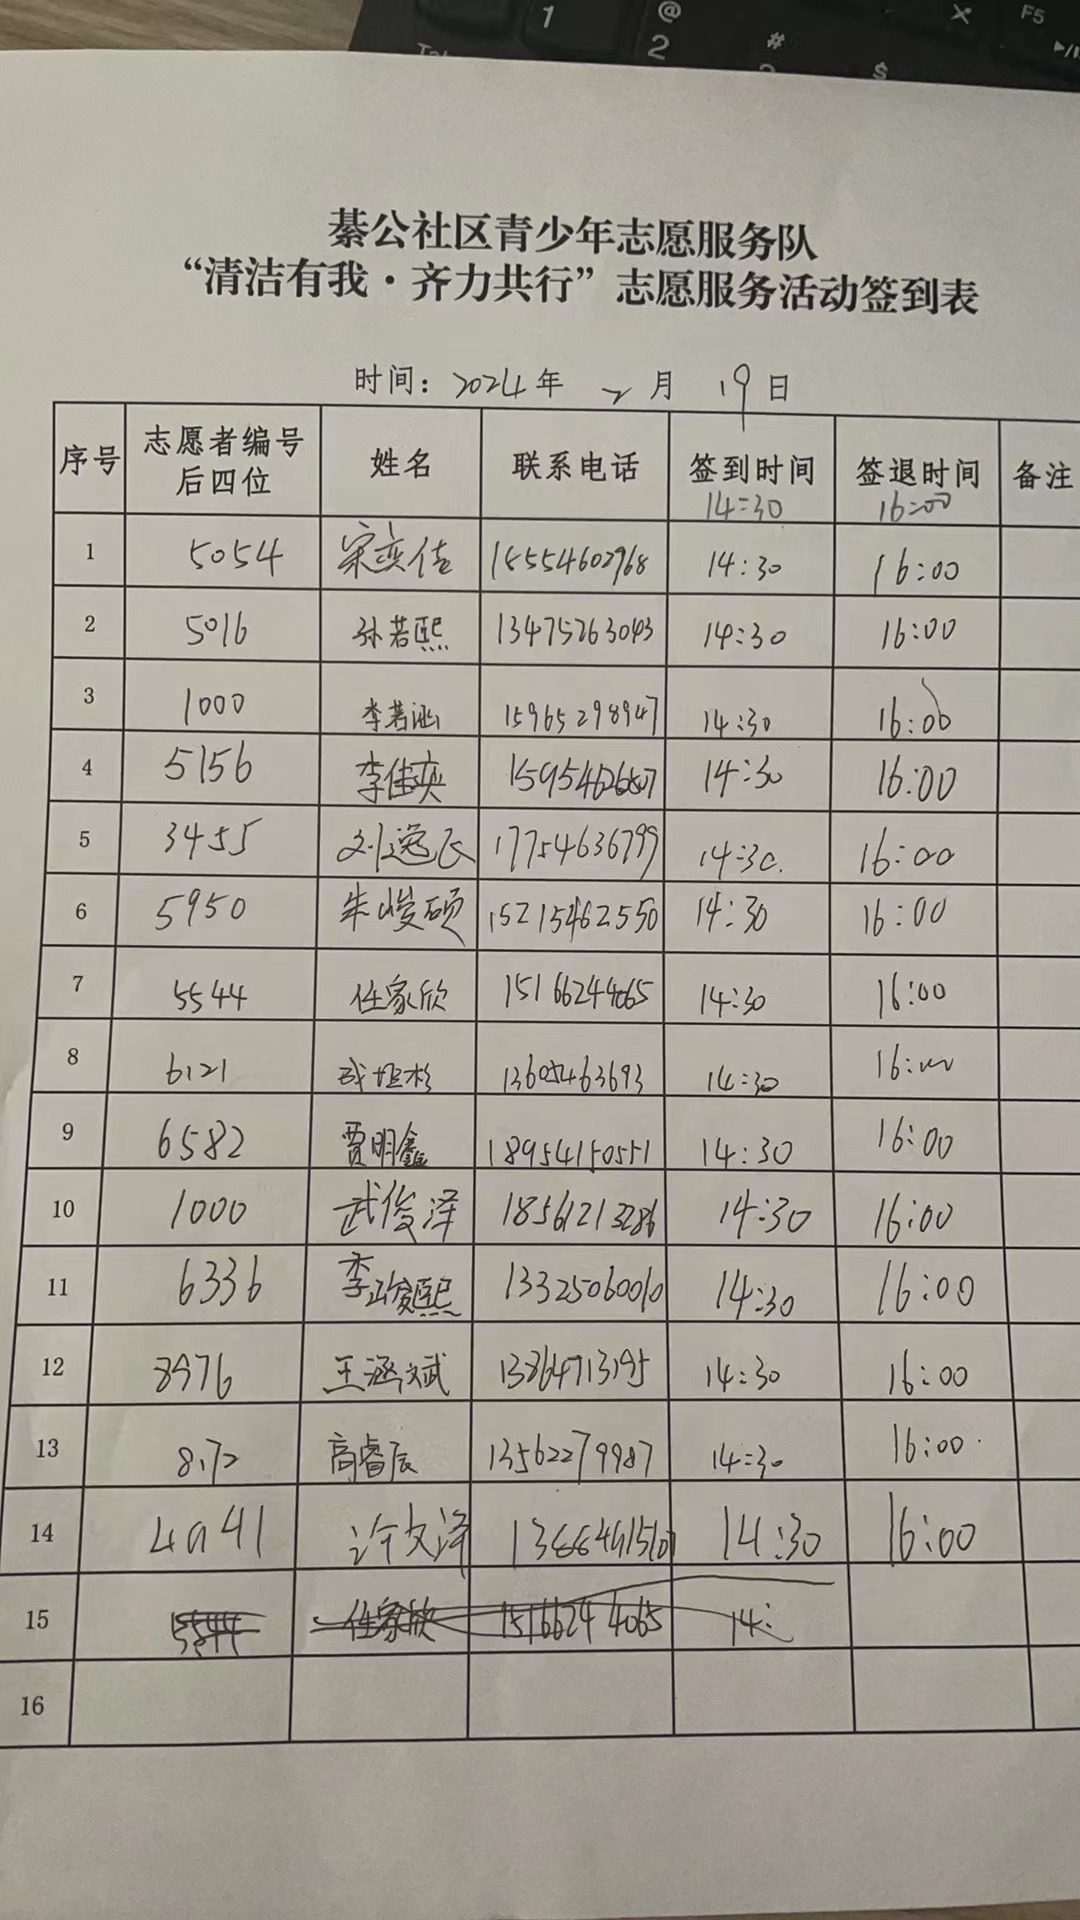 1 @ 2 # $ X F5
Ta
綦公社区青少年志愿服务队
“清洁有我·齐力共行”志愿服务活动签到表
时间：2024年 2月 19日
序号 志愿者编号后四位 姓名 联系电话 签到时间 签退时间 备注
14:30 16:00
1 5054 宋奕佳 15554602968 14:30 16:00
2 5016 孙若熙 13475263043 14:30 16:00
3 1000 李若涵 15965298947 14:30 16:00
4 5156 李佳奕 14:30 16:00
5 3455 刘逸飞 17754636799 14:30 16:00
6 5950 朱峻硕 15215462550 14:30 16:00
7 5544 任家欣 15166244065 14:30 16:00
8 6121 13605463693 14:30 16:00
9 6582 贾明鑫 18954150551 14:30 16:00
10 1000 武俊泽 18561213286 14:30 16:00
11 6336 李峻熙 13325060010 14:30 16:00
12 8976 王涵斌 13864713195 14:30 16:00
13 8172 高睿辰 13562279987 14:30 16:00
14 4941 许文泽 14:30 16:00
15 5544 任家欣 15166244065 14:
16